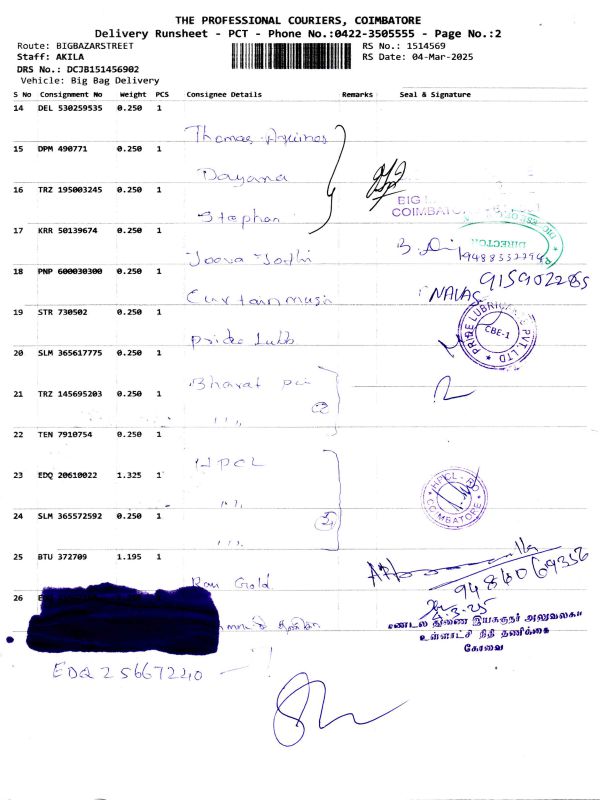 THE PROFESSIONAL COURIERS, COIMBATORE
Delivery Runsheet - PCT - Phone No.:0422-3505555 - Page No.:2
Route: BIGBAZARSTREET
RS No.: 1514569
Staff: AKILA
RS Date: 04-Mar-2025
DRS No.: DCJB151456902
Vehicle: Big Bag Delivery
S No Consignment No Weight PCS Consignee Details Remarks Seal & Signature
14 DEL 530259535 0.250 1
Thomas Aquinas
15 DPM 490771 0.250 1
Dayana
16 TRZ 195003245 0.250 1
BIG
COIMBATO
Stephen
17 KRR 50139674 0.250 1
DIRECTOR
Jeeva Jothi
9488332294
18 PNP 600030300 0.250 1
9159022865
NAVAS
19 STR 730502 0.250 1
PRIDE LUBRICANTS PVT. LTD
CBE-1
Pride Lubb
20 SLM 365617775 0.250 1
Bharat
21 TRZ 145695203 0.250 1
2
22 TEN 7910754 0.250 1
HPCL
23 EDQ 20610022 1.325 1
HPCL - RO
COIMBATORE
24 SLM 365572592 0.250 1
25 BTU 372709 1.195 1
9486069356
Ran Gold
26
4.3.25
மண்டல துணை இயக்குநர் அலுவலகம்
உள்ளாட்சி நிதி தணிக்கை
கோவை
EDQ 25667240